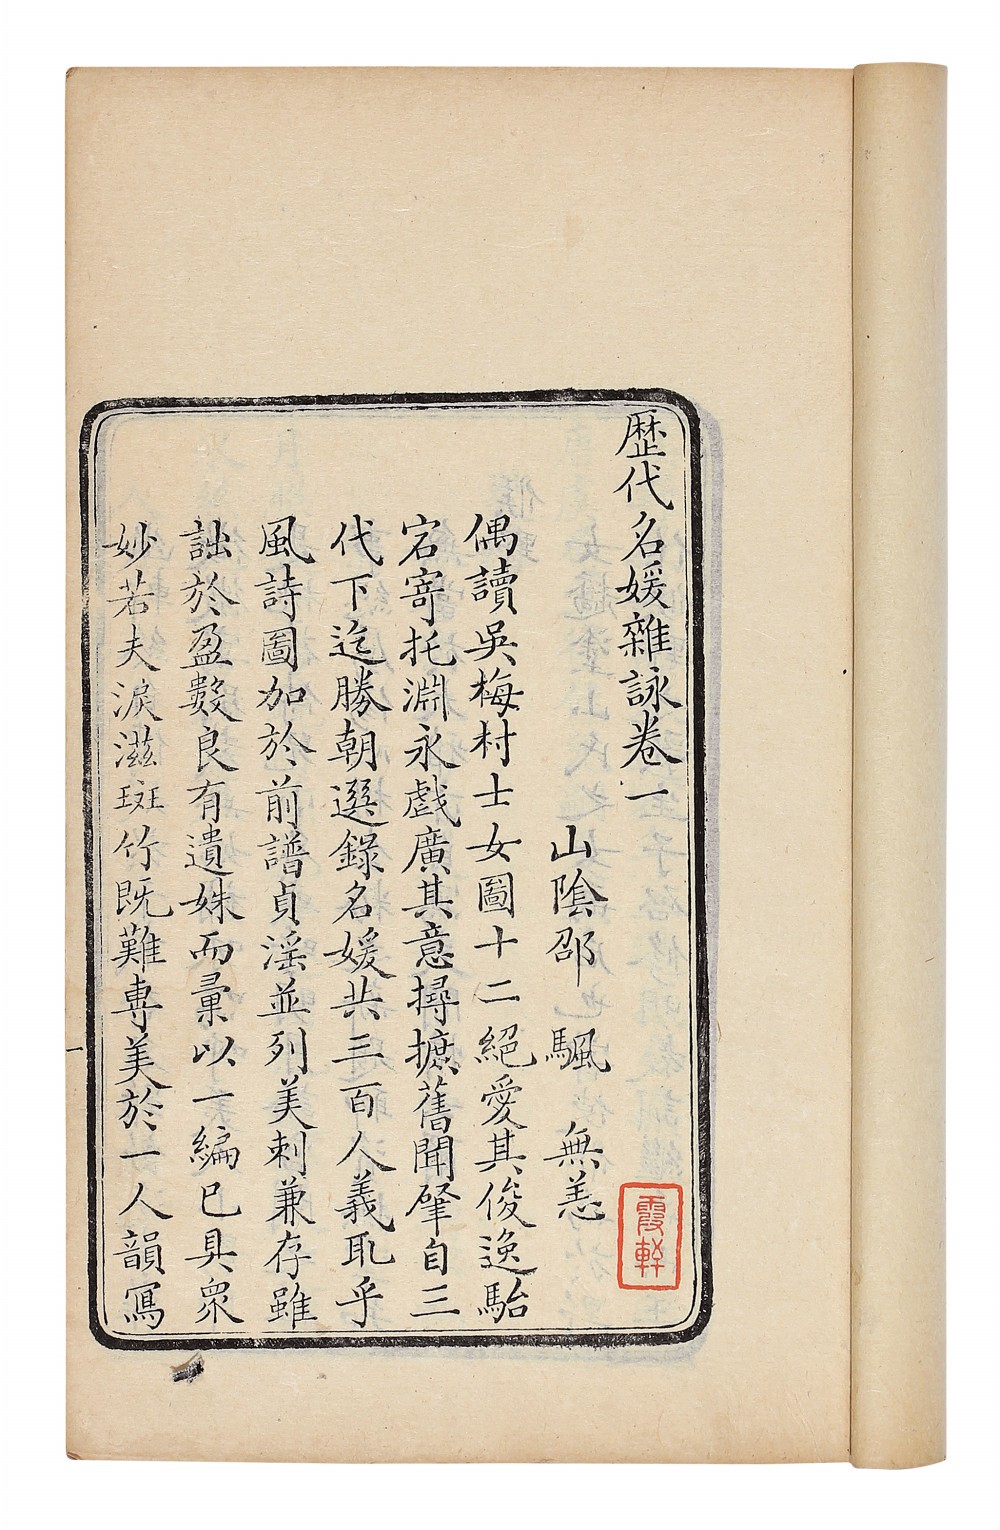 歷代名媛雜詠卷一
山陰邵颿無恙
偶讀吳梅村士女圖十二絕愛其俊逸駘
宕寄托淵永戲廣其意撏摭舊聞肇自三
代下迄勝朝選錄名媛共三百人義取乎
風詩圖加於前譜貞淫並列美刺兼存雖
詘於盈數良有遺姝而彙以一編已具衆
妙若夫淚滋斑竹既難專美於一人韻寫
霞軒